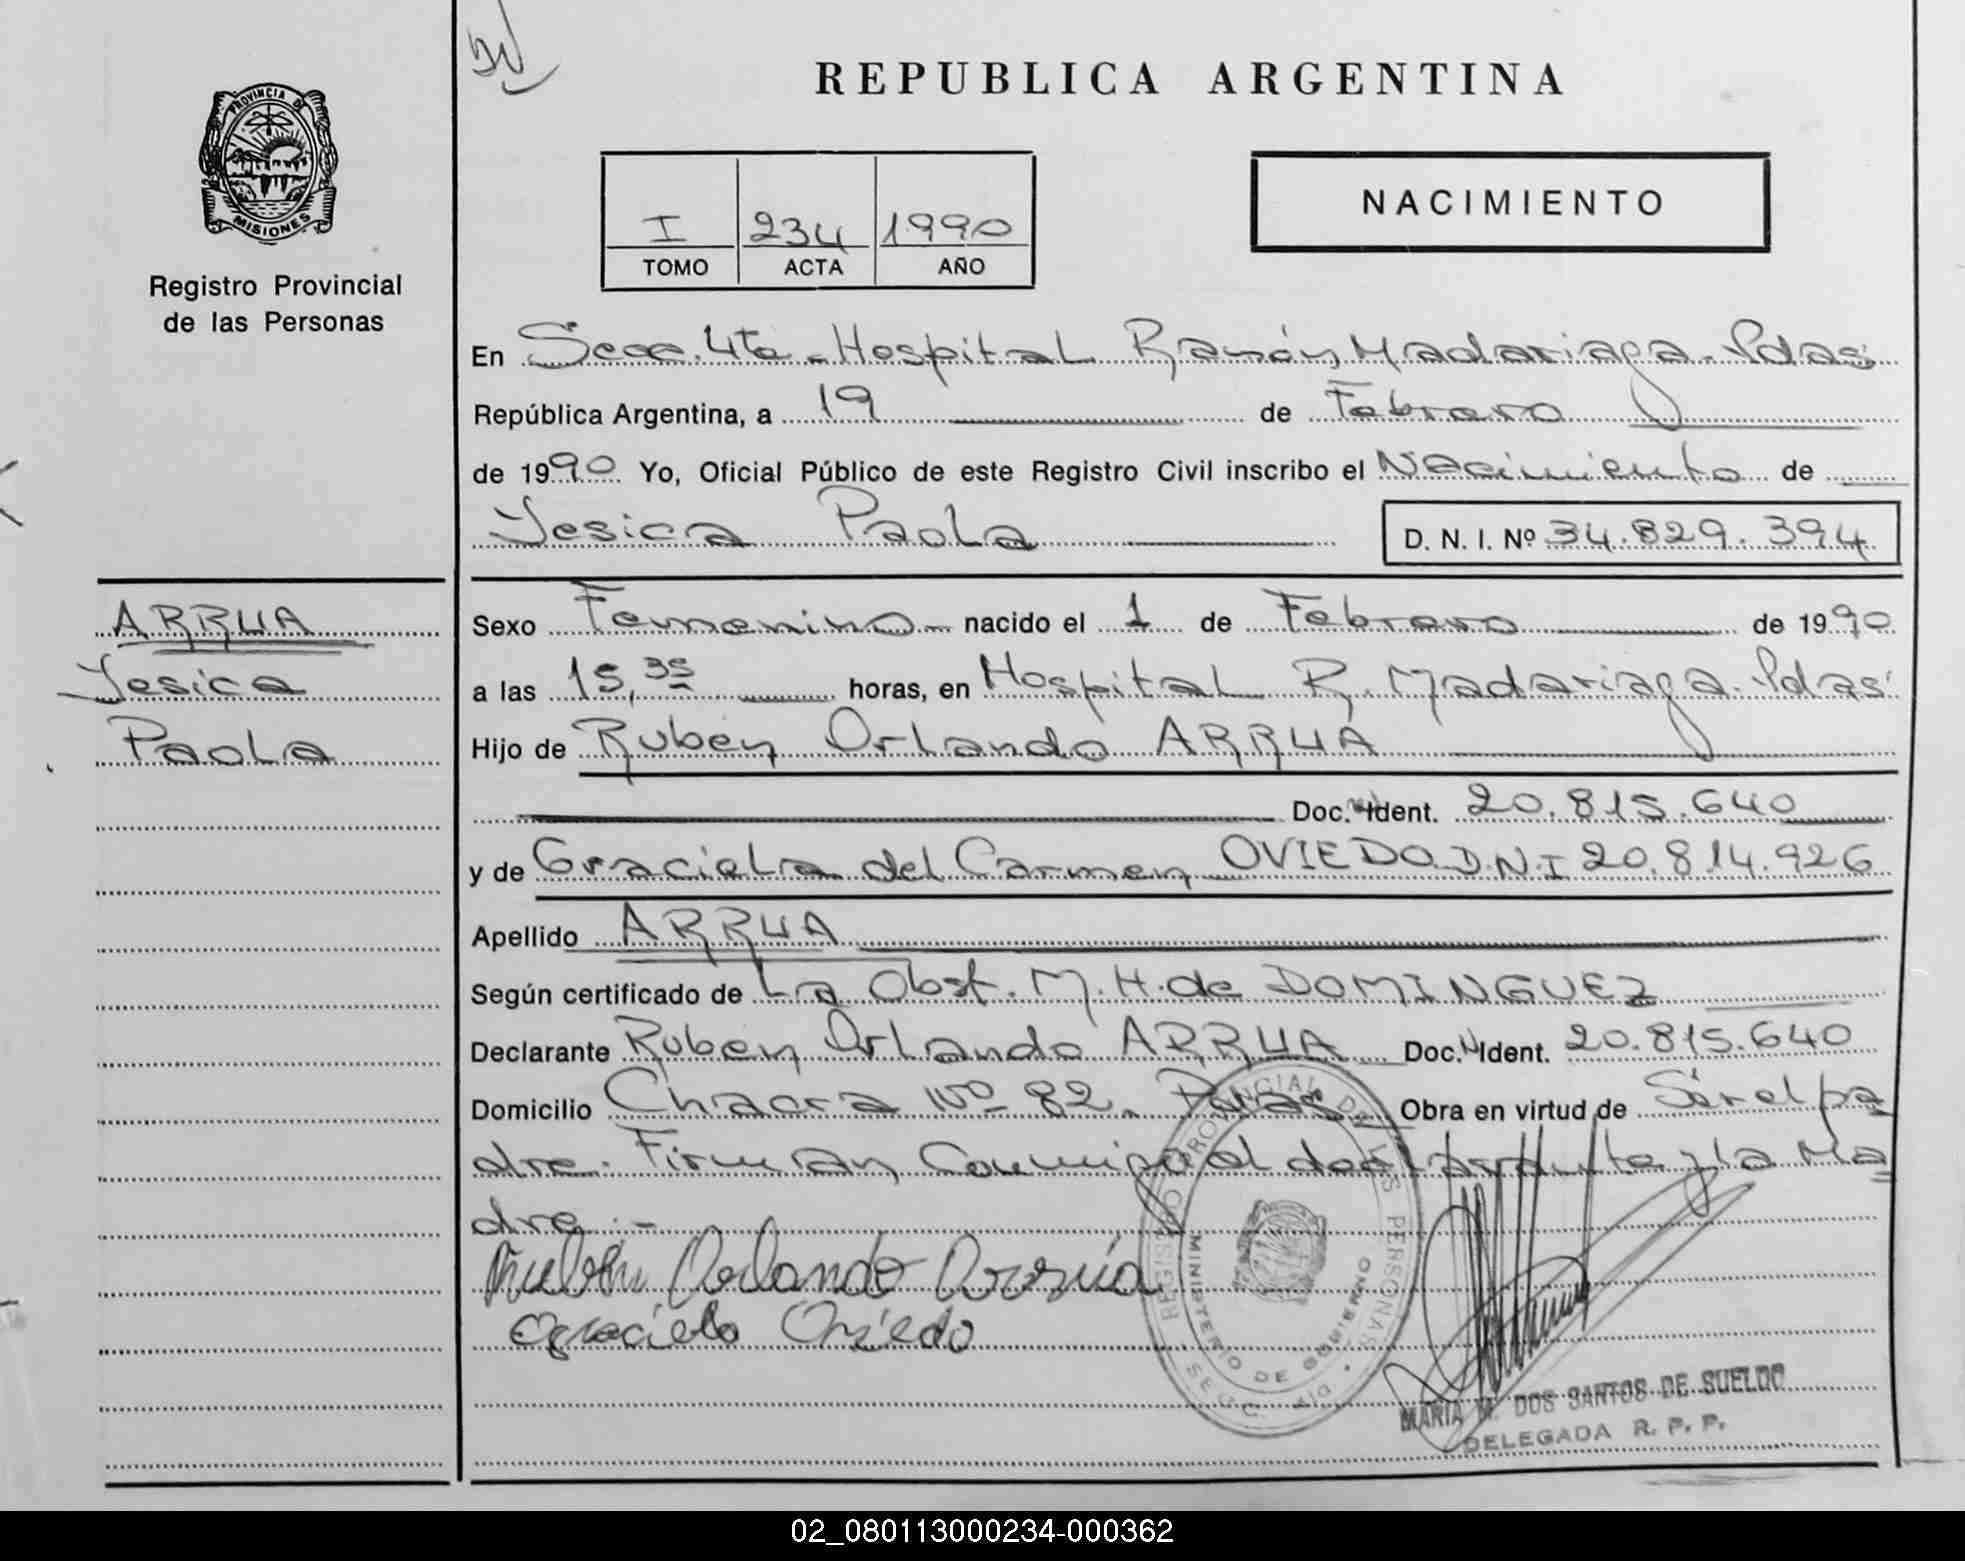 REPUBLICA ARGENTINA
PROVINCIA DE
MISIONES
Registro Provincial
de las Personas
I 234 1990
TOMO ACTA AÑO
NACIMIENTO
En Secc. 4ta - Hospital Ramón Madariaga - Pdas
República Argentina, a 19 de Febrero
de 1990 Yo, Oficial Público de este Registro Civil inscribo el Nacimiento de
Yesica Paola D. N. I. Nº 34.829.394
ARRUA
Yesica
Paola
Sexo Femenino - nacido el 1 de Febrero de 1990
a las 15,35 horas, en Hospital R. Madariaga - Pdas
Hijo de Ruben Orlando ARRUA
Doc. Ident. 20.815.640
y de Graciela del Carmen OVIEDO D.N.I 20.814.926
Apellido ARRUA
Según certificado de La Obst. M. H. de DOMINGUEZ
Declarante Ruben Orlando ARRUA Doc. Ident. 20.815.640
Domicilio Chacra Nº 82 - Pdas Obra en virtud de Ser el pa
dre. Firman Conmigo el declarante y la Ma
dre.-
Rubén Orlando Arrúa
Graciela Oviedo
REGISTRO PROVINCIAL DE LAS PERSONAS
MINISTERIO DE GOBIERNO
MARIA M. DOS SANTOS DE SUELDO
DELEGADA R. P. P.
02_080113000234-000362